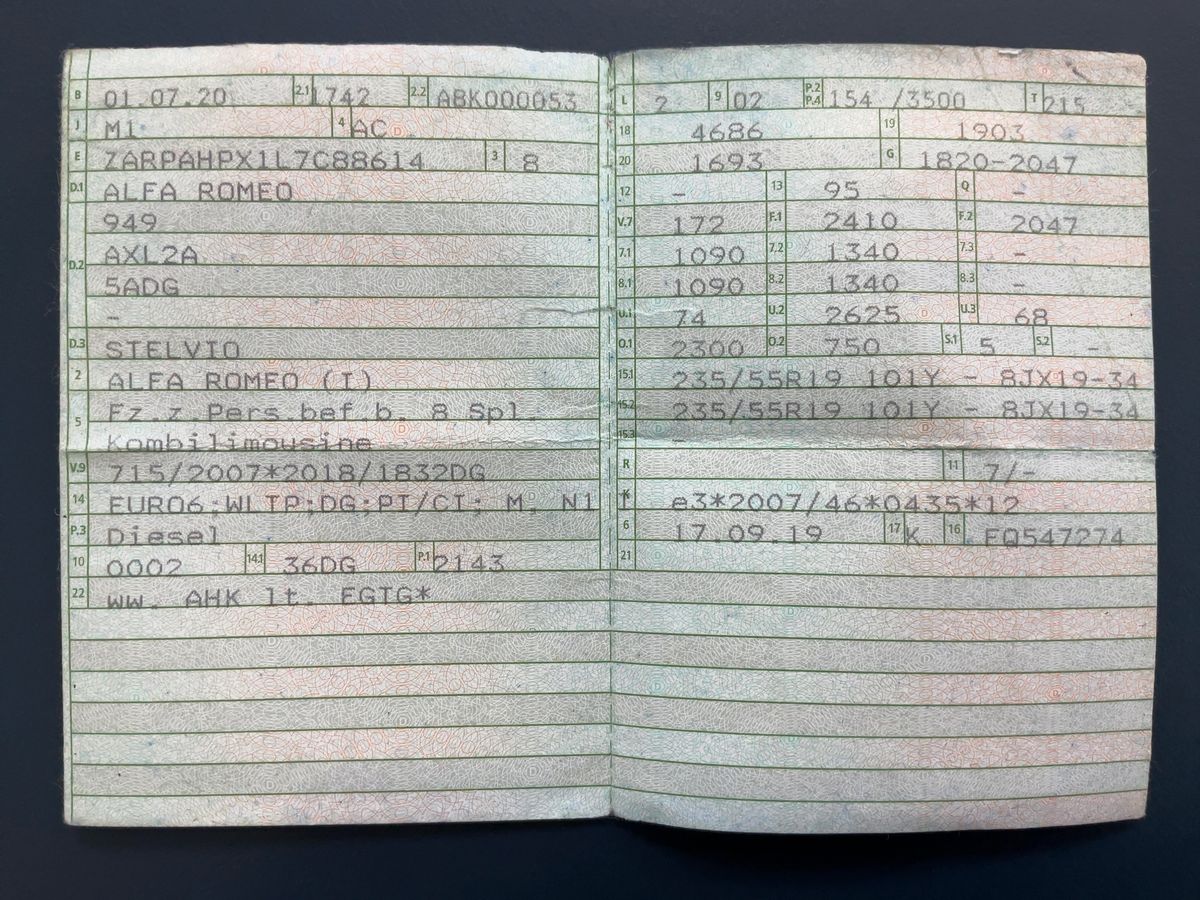 B 01.07.20 2.1 1742 2.2 ABK000053
J M1 4 AC
E ZARPAHPX1L7C88614 3 8
D.1 ALFA ROMEO
949
D.2 AXL2A
5ADG
-
D.3 STELVIO
2 ALFA ROMEO (I)
5 Fz.z.Pers.bef.b. 8 Spl.
Kombilimousine
V.9 715/2007*2018/1832DG
14 EURO6;WLTP;DG;PI/CI; M, N1
P.3 Diesel
10 0002 14.1 36DG P.1 2143
22 ww. AHK lt. EGTG*
L 2 9 02 P.2 P.4 154 /3500 T 215
18 4686 19 1903
20 1693 G 1820-2047
12 - 13 95 Q -
V.7 172 F.1 2410 F.2 2047
7.1 1090 7.2 1340 7.3 -
8.1 1090 8.2 1340 8.3 -
U.1 74 U.2 2625 U.3 68
O.1 2300 O.2 750 S.1 5 S.2 -
15.1 235/55R19 101Y - 8JX19-34
15.2 235/55R19 101Y - 8JX19-34
15.3 -
R 11 7/-
K e3*2007/46*0435*12
6 17.09.19 17 K 16 FQ547274
21